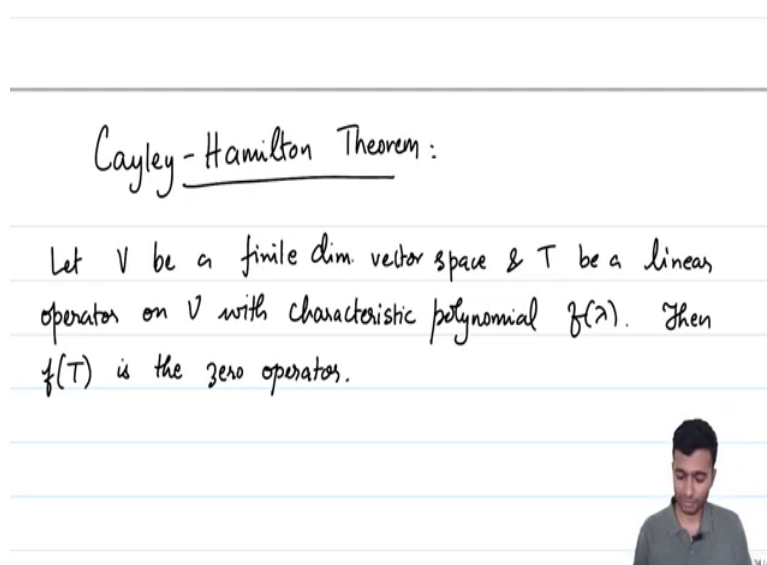 Cayley-Hamilton Theorem:
Let V be a finite dim. vector space & T be a linear
operator on V with characteristic polynomial f(λ). Then
f(T) is the zero operator.